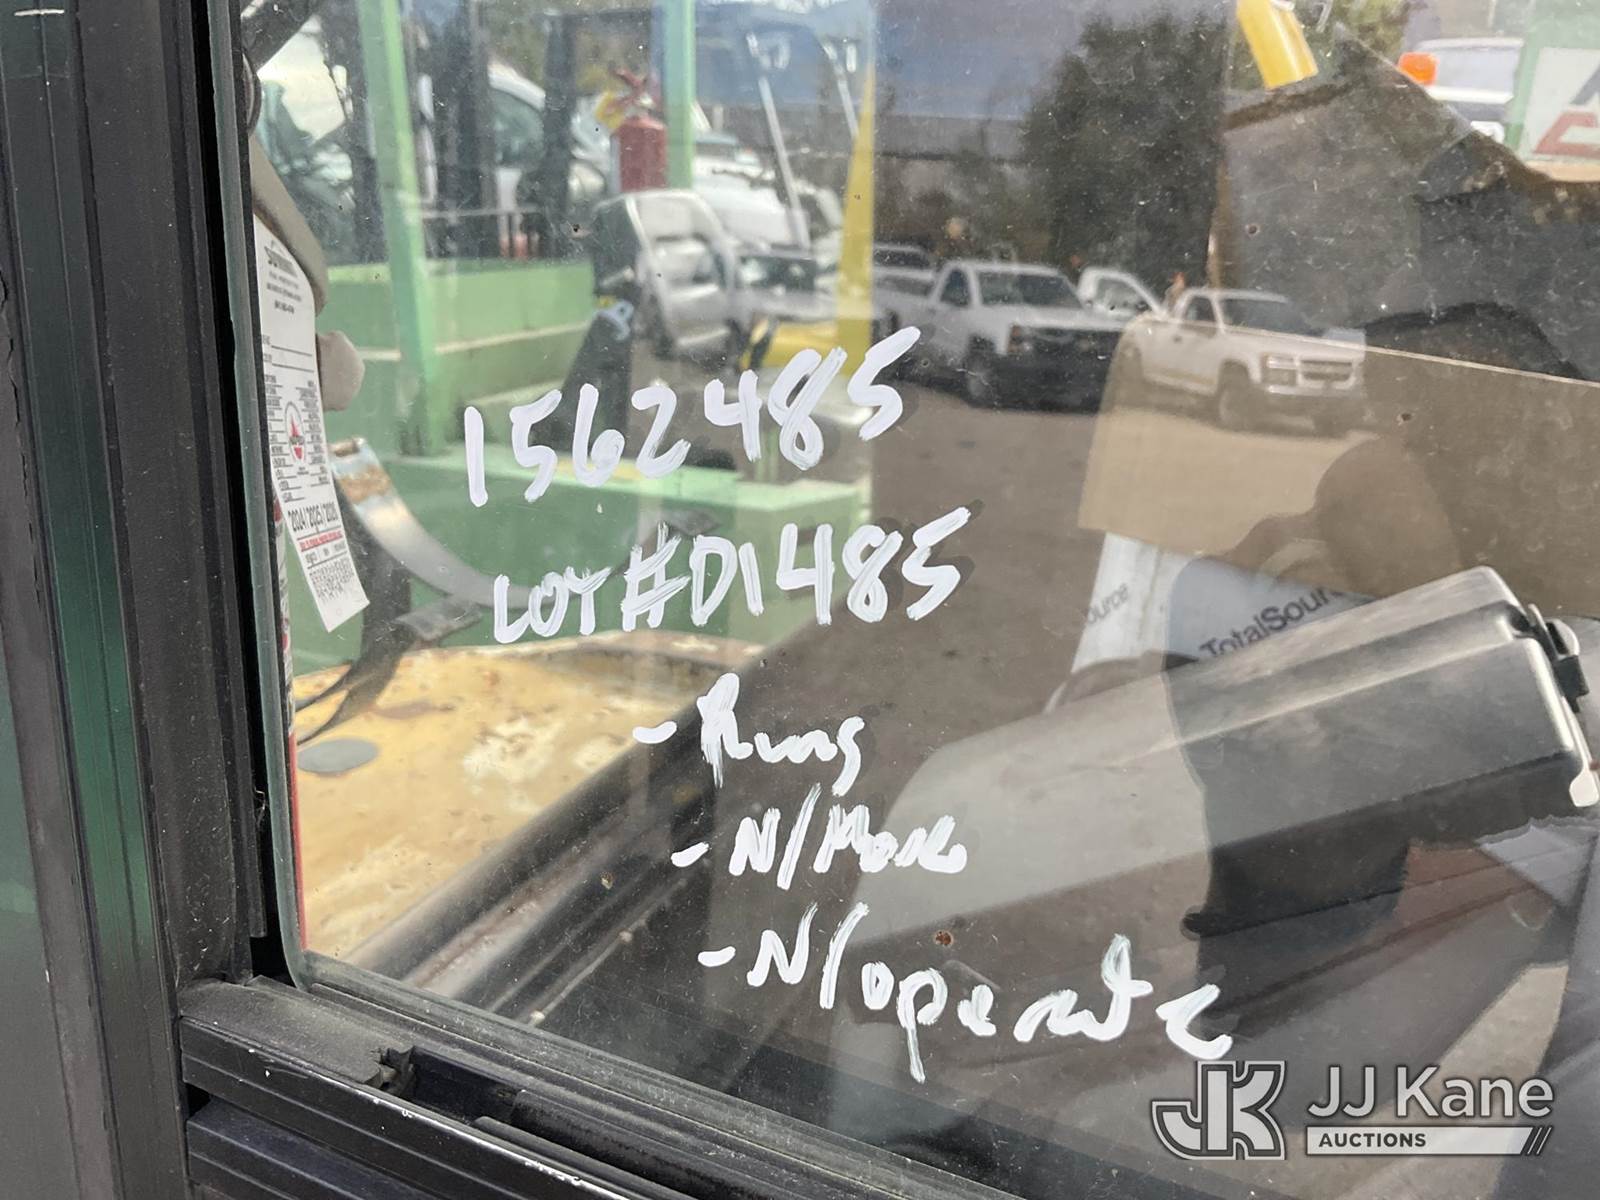 1562485
LOT#D1485
- Runs
- N/Move
- N/operate
2024/2025/2026
TotalSour
ource
JJ Kane
AUCTIONS